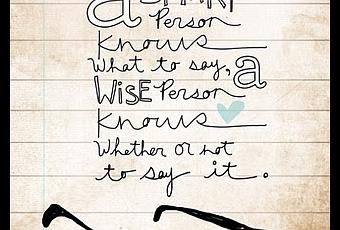 a SMART
Person
Knows
What to say, a
WiSE Person
Knows
Whether or not
to say it.